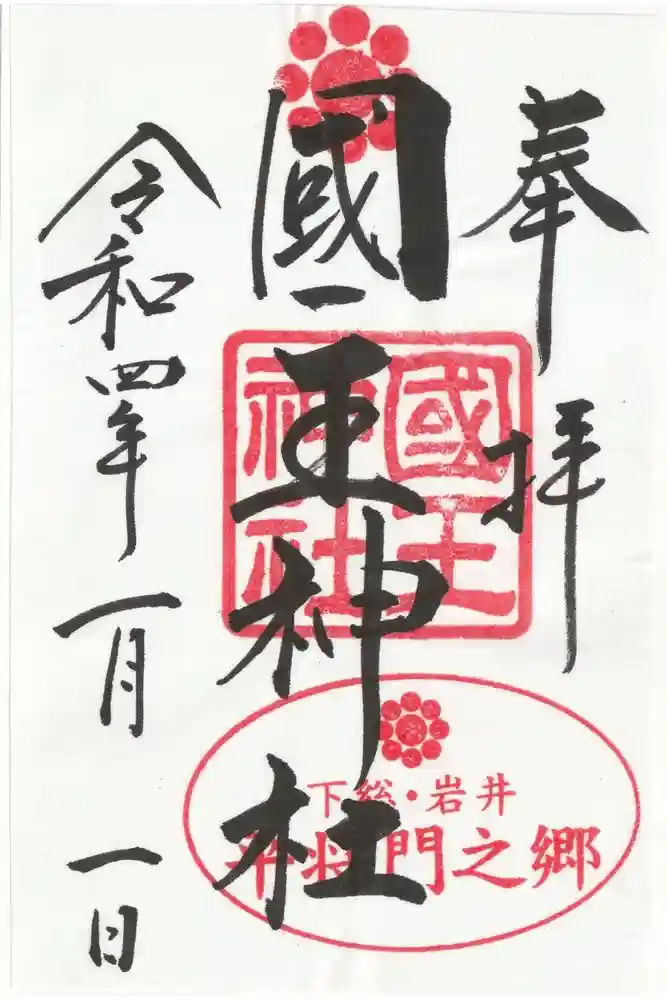 奉拝
國王神社
國王
神社
下総・岩井
平将門之郷
令和四年一月一日